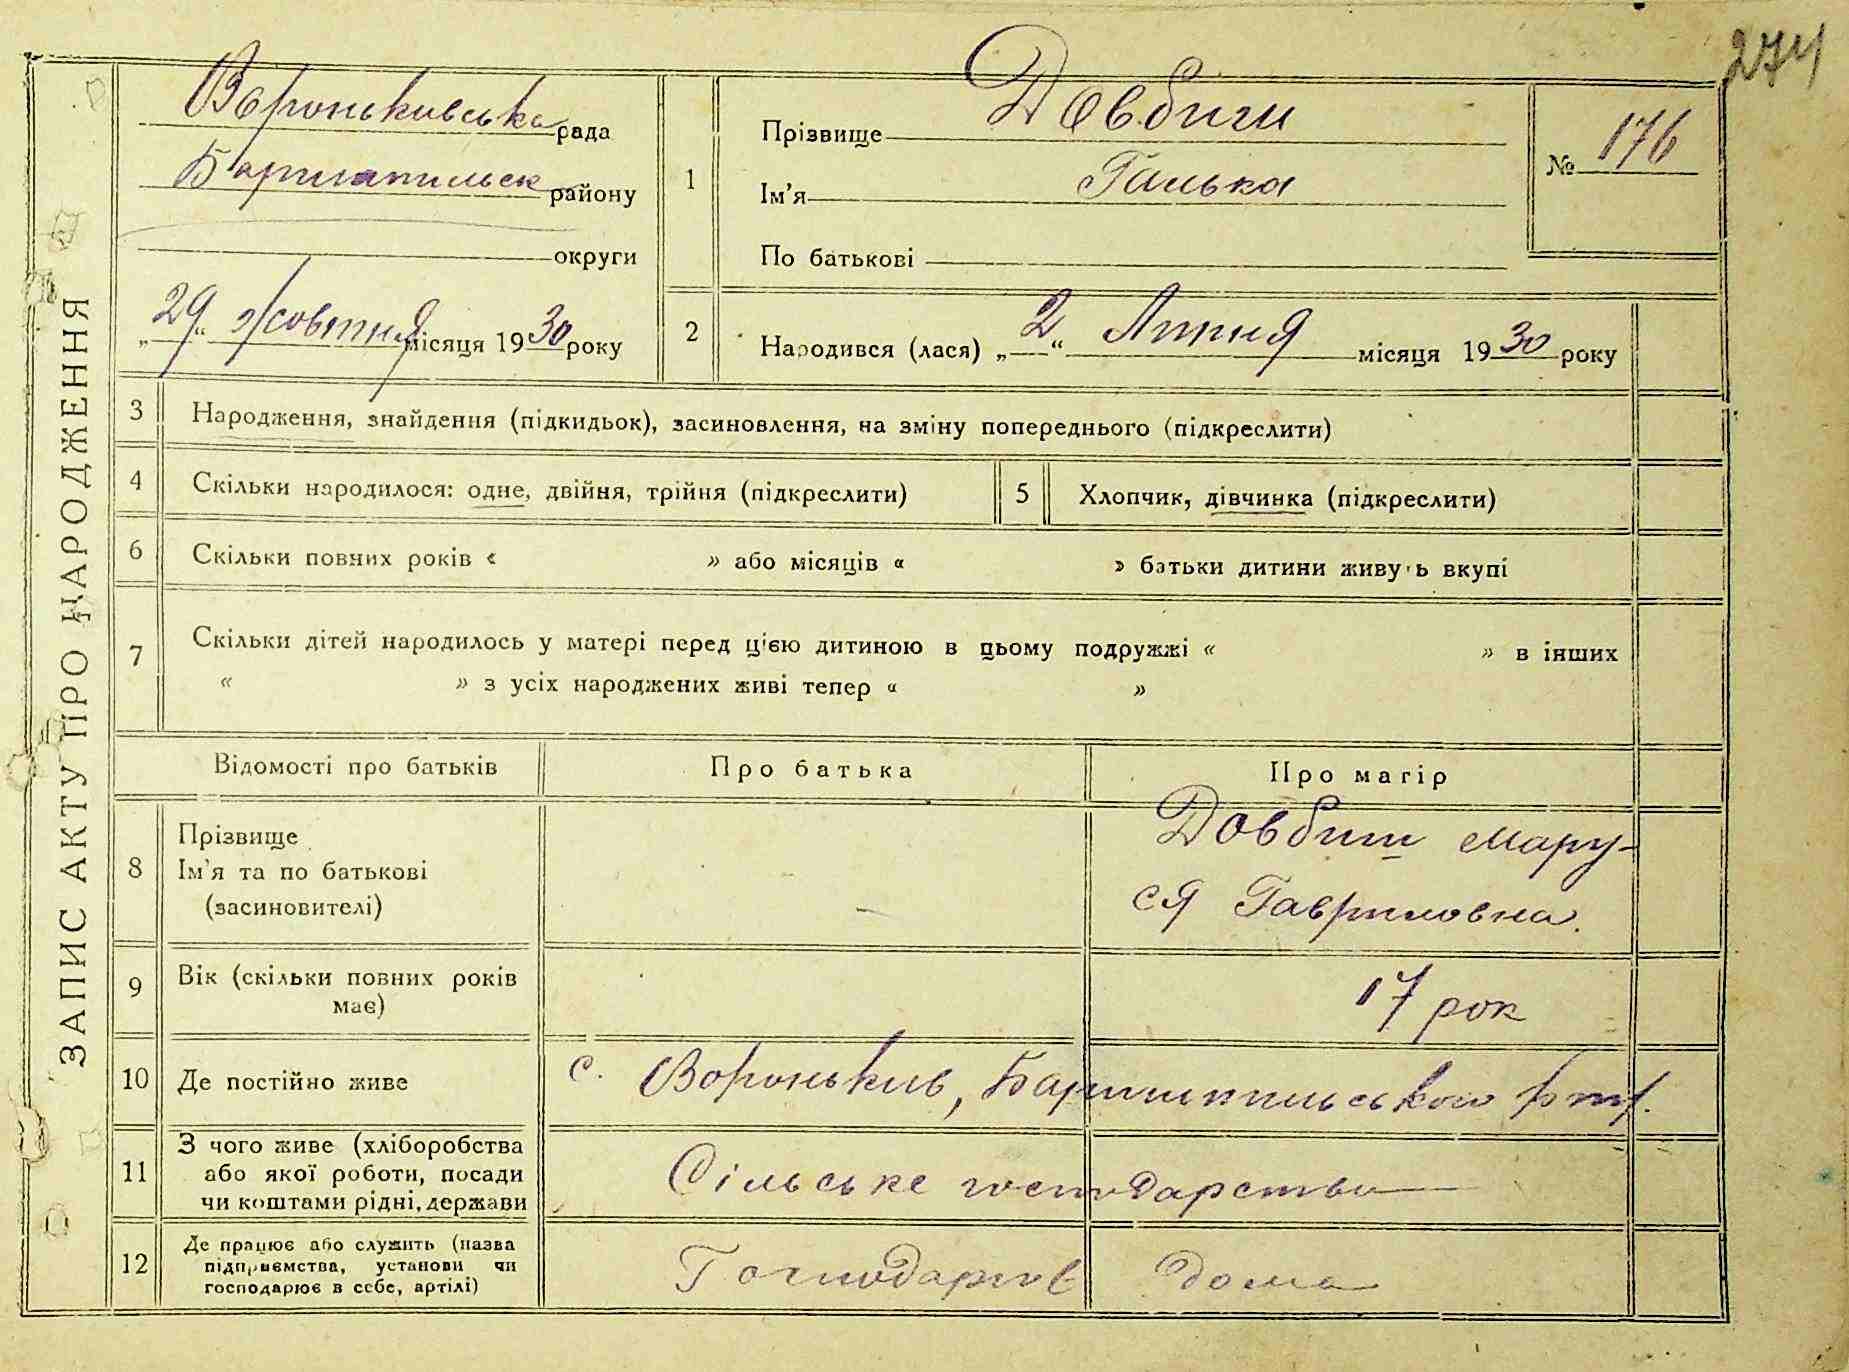 274
ЗАПИС АКТУ ПРО НАРОДЖЕННЯ
Вороньківська рада
Баришпільськ району
округи
„29“ жовтня місяця 1930 року
1
Прізвище Довбиш
Ім'я Галька
По батькові
№ 176
2
Народився (лася) „2“ Липня місяця 1930 року
3 Народження, знайдення (підкидьок), засиновлення, на зміну попереднього (підкреслити)
4 Скільки народилося: одне, двійня, трійня (підкреслити)
5 Хлопчик, дівчинка (підкреслити)
6 Скільки повних років « » або місяців « » батьки дитини живуть вкупі
7 Скільки дітей народилось у матері перед цією дитиною в цьому подружжі « » в інших
« » з усіх народжених живі тепер « »
Відомості про батьків Про батька Про матір
8 Прізвище
Ім'я та по батькові
(засиновителі)
Довбиш Мару-
ся Гавриловна.
9 Вік (скільки повних років
має)
17 рок
10 Де постійно живе
с. Вороньків, Баришпільського
11 З чого живе (хліборобства
або якої роботи, посади
чи коштами рідні, держави
Сільське господарство
12 Де працює або служить (назва
підприємства, установи чи
господарює в себе, артілі)
Господарює дома